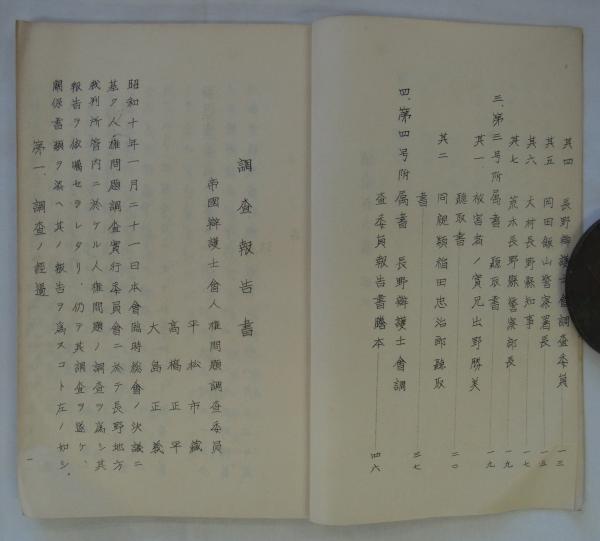 其四 長野辯護士會調査委員 一三
其五 岡田飯山警察署長 一五
其六 大村長野縣知事 一七
其七 荒木長野縣警察部長 一九
三、第三号附属書 聴取書
其一 被害者ノ實兄出野勝美
聴取書 二〇
其二 同親類稲田忠治郎聴取
書 三七
四、第四号附属書 長野辯護士會調
査委員報告書謄本 四六
調査報告書
帝國辯護士會人権問題調査委員
平松市蔵
高橋正平
大島正義
昭和十年一月二十一日本會臨時總會ノ決議ニ
基ク人権問題調査實行委員會ニ於テ長野地方
裁判所管内ニ於ケル人権問題ノ調査ヲ為シ其
報告ヲ依嘱セラレタリ、仍テ其調査ヲ遂ケ、
關係書類ヲ添ヘ其ノ報告ヲ為スコト左ノ如シ、
第一、調査ノ經過
一